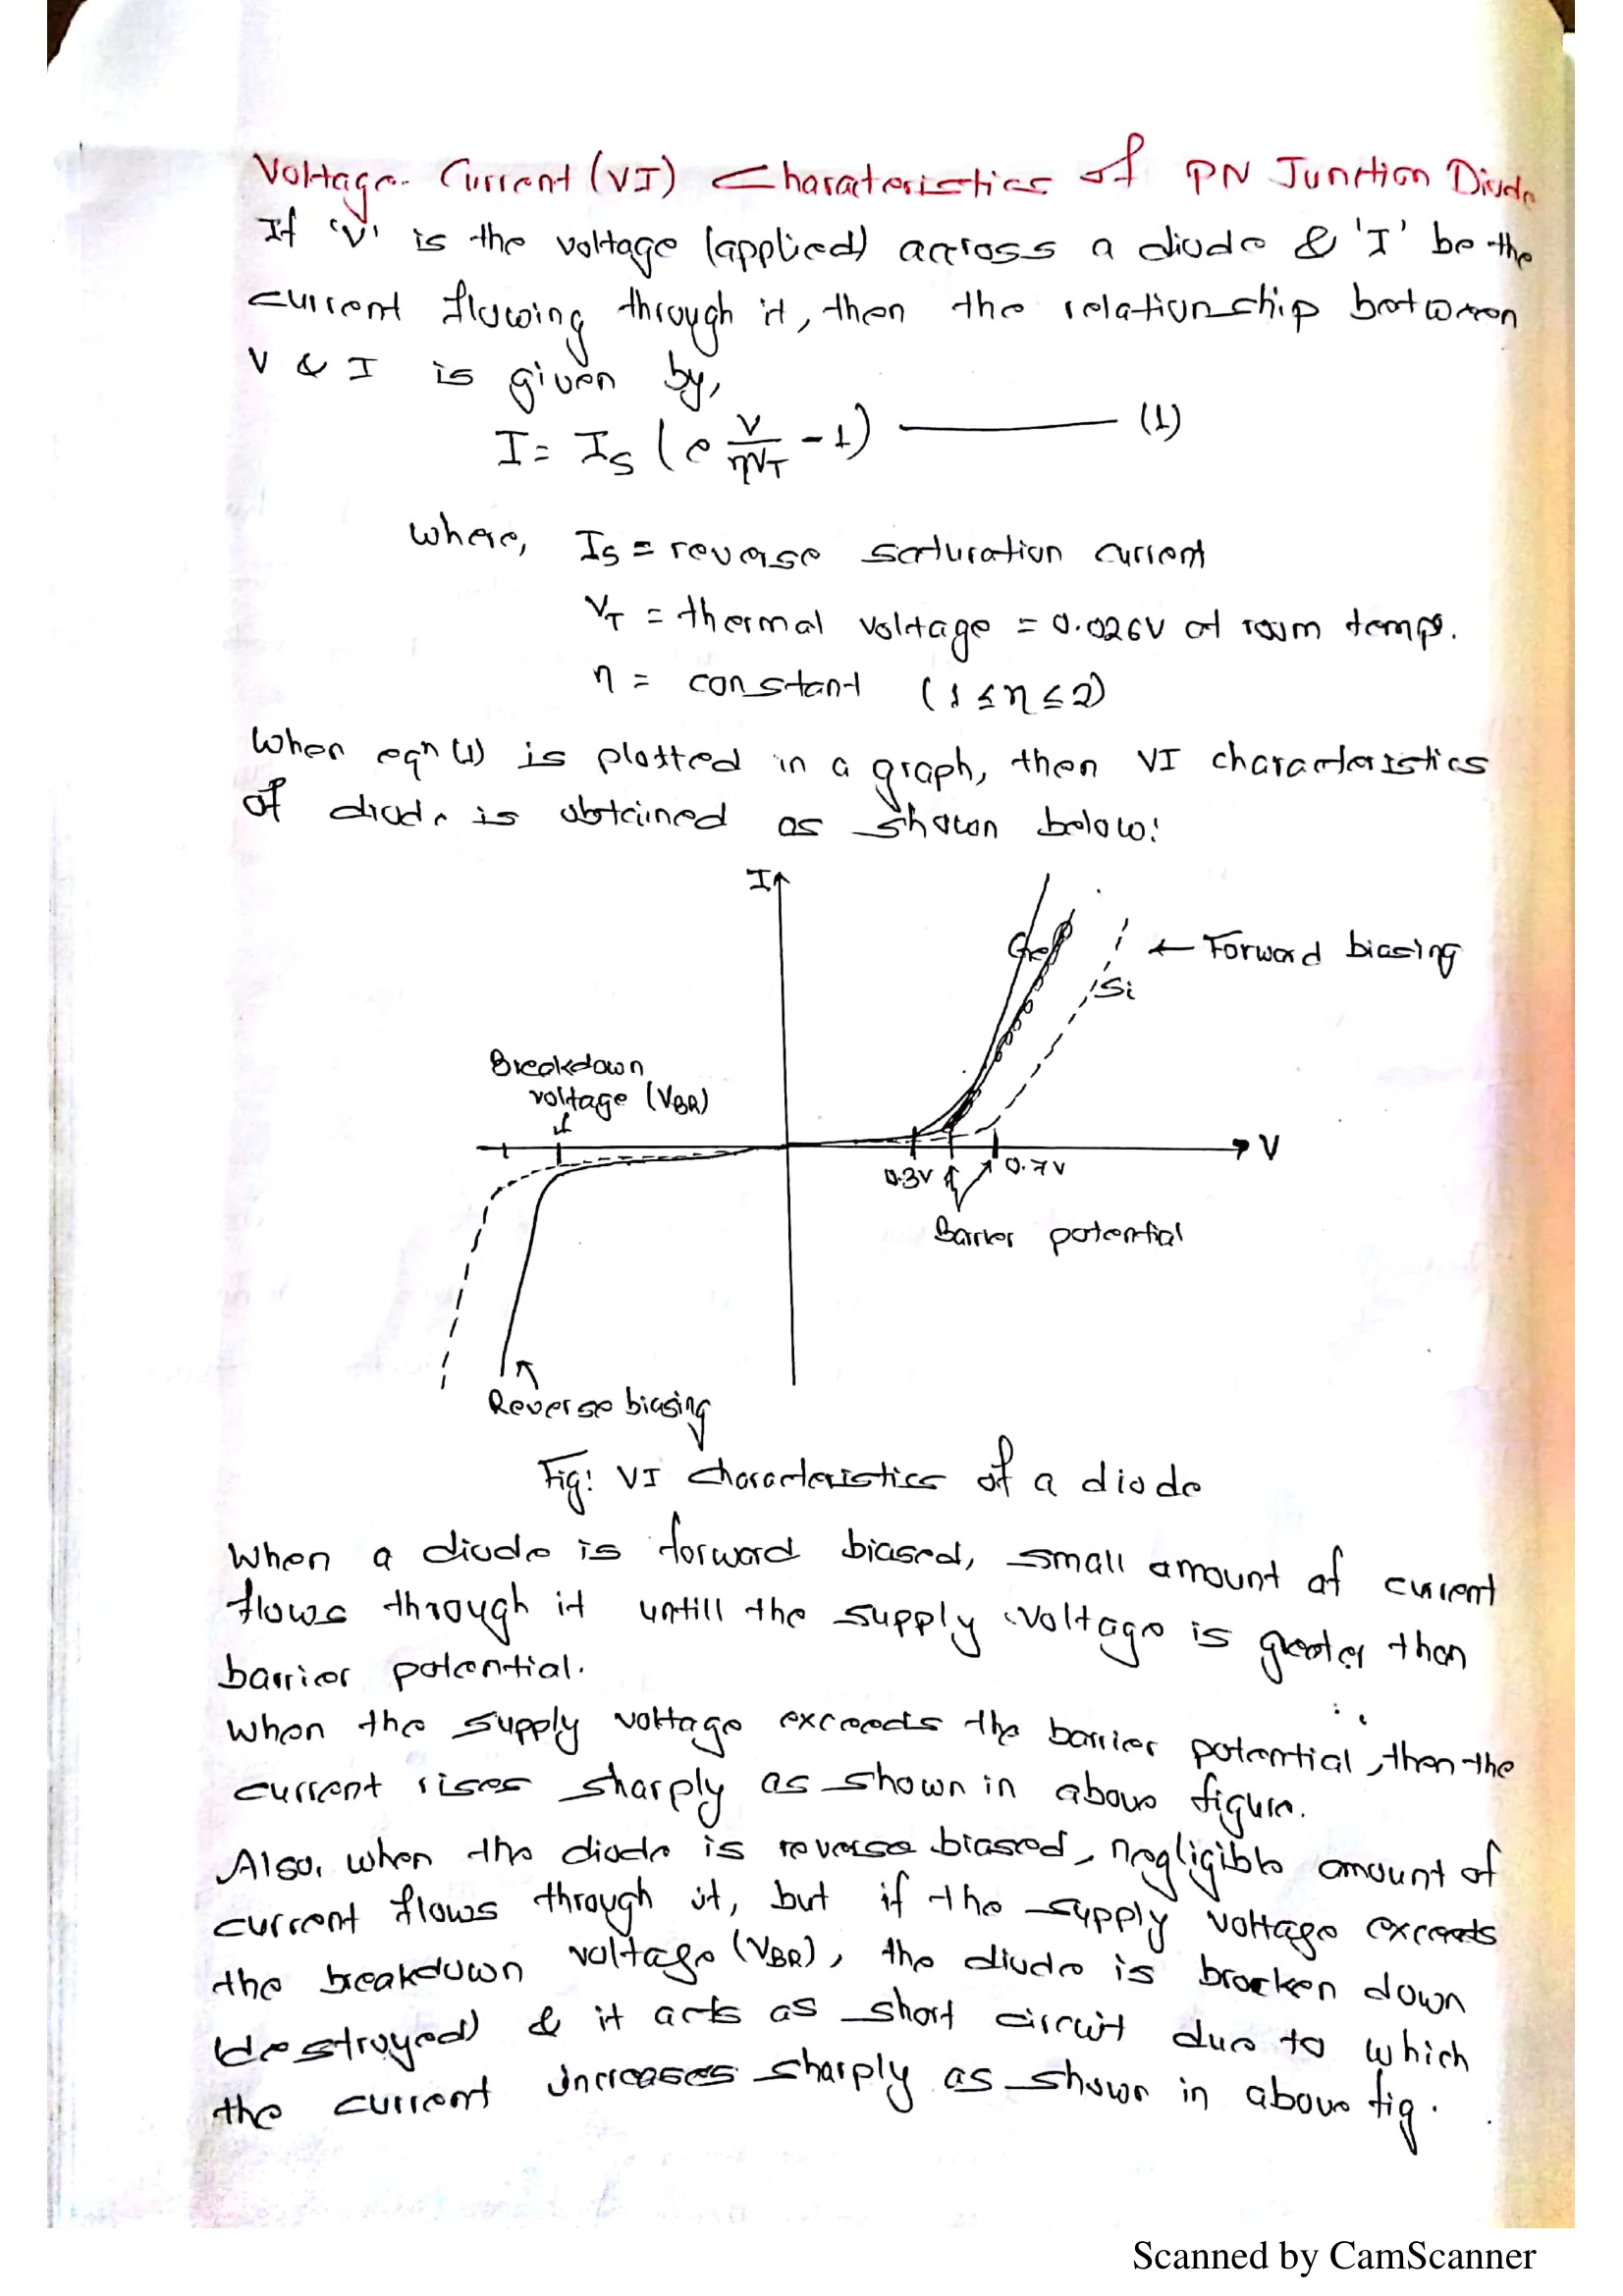 Voltage-Current (VI) Charateristics of PN Junction Diode
If 'V' is the voltage (applied) across a diode & 'I' be the
current flowing through it, then the relationship between
V & I is given by,
I = I_S (e^{V/ηV_T} - 1) ——— (1)
where, I_S = reverse saturation current
V_T = thermal voltage = 0.026V at room temp.
η = constant (1 ≤ η ≤ 2)
When eqn (1) is plotted in a graph, then VI characteristics
of diode is obtained as shown below:
I
Ge
← Forward biasing
Si
Breakdown
voltage (V_BR)
V
0.3V
0.7V
Barrier potential
Reverse biasing
Fig: VI characteristics of a diode
When a diode is forward biased, small amount of current
flows through it untill the supply voltage is greater than
barrier potential.
When the supply voltage exceeds the barrier potential, then the
current rises sharply as shown in above figure.
Also, when the diode is reverse biased, negligible amount of
current flows through it, but if the supply voltage exceeds
the breakdown voltage (V_BR), the diode is brocken down
(destroyed) & it acts as short circuit due to which
the current increases sharply as shown in above fig.
Scanned by CamScanner